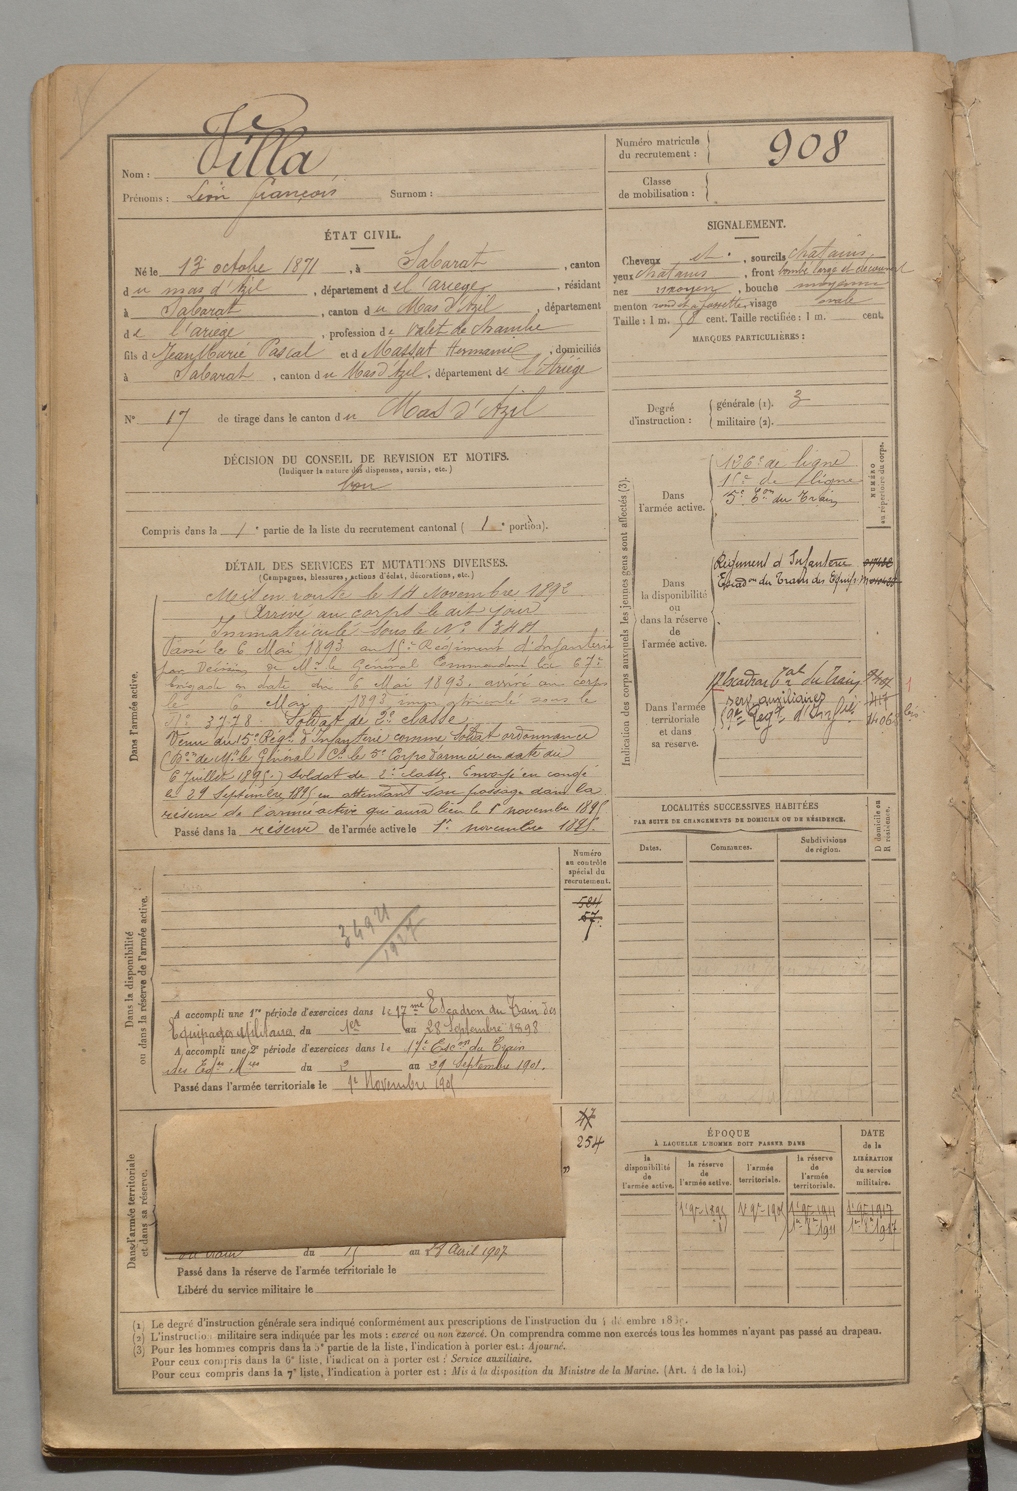 Nom : Villa
Prénoms : Léon François Surnom :
Numéro matricule du recrutement : 908
Classe de mobilisation :
ÉTAT CIVIL.
Né le 13 octobre 1871, à Sabarat, canton
du mas d'Azil, département de l'ariège, résidant
à Sabarat, canton du Mas d'Azil, département
de l'ariège, profession de valet de chambre
fils de Jean Marie Pascal et de Massat Hermaine, domiciliés
à Sabarat, canton du Mas d'Azil, département de l'Ariège
N° 17 de tirage dans le canton du Mas d'Azil
SIGNALEMENT.
Cheveux et, sourcils chatains,
yeux chatains, front bombé large et découvert
nez moyen, bouche moyenne
menton rond et à fossette, visage ovale
Taille : 1 m. cent. Taille rectifiée : 1 m. cent.
MARQUES PARTICULIÈRES :
Degré d'instruction : générale (1). 3
militaire (2).
DÉCISION DU CONSEIL DE REVISION ET MOTIFS.
(Indiquer la nature des dispenses, sursis, etc.)
bon
Compris dans la 1e partie de la liste du recrutement cantonal ( 1e portion).
DÉTAIL DES SERVICES ET MUTATIONS DIVERSES.
(Campagnes, blessures, actions d'éclat, décorations, etc.)
Dans l'armée active.
Mis en route le 14 Novembre 1892
Arrivé au corps le dit jour
Immatriculé sous le N° 3481
Passé le 6 Mai 1893 au 15e Régiment d'Infanterie
par Décision de Mr le Général Commandant la 67e
brigade en date du 6 Mai 1893. arrivé au corps
le 6 Mai 1893, immatriculé sous le
N° 3778. Soldat de 2e classe.
Venu du 15e Régt d'Infanterie comme soldat ordonnance
(Don de Mr le Général Ct le 5e Corps d'armée en date du
6 Juillet 1895.) soldat de 2e classe. Envoyé en congé
le 29 Septembre 1895 en attendant son passage dans la
réserve de l'armée active qui aura lieu le 1er novembre 1895
Passé dans la réserve de l'armée active le 1er novembre 1895.
Indication des corps auxquels les jeunes gens sont affectés (3).
NUMÉRO au répertoire du corps.
Dans l'armée active.
126e de ligne
15e de ligne
5e Eon du Train
Dans la disponibilité ou dans la réserve de l'armée active.
Régiment d'Infanterie
Escadon du Train des Equip. M
Dans l'armée territoriale et dans sa réserve.
17 Escadron tal du Train
serv. auxiliaires
Regt d'Infie
1406 bis
LOCALITÉS SUCCESSIVES HABITÉES
PAR SUITE DE CHANGEMENTS DE DOMICILE OU DE RÉSIDENCE.
Dates. Communes. Subdivisions de région. D domicile ou R résidence.
Dans la disponibilité ou dans la réserve de l'armée active.
Numéro au contrôle spécial du recrutement.
584
57
34921
1927
A accompli une 1re période d'exercices dans le 17me Escadron du Train des
Equipages Militaires du 1er au 28 Septembre 1898
A accompli une 2e période d'exercices dans le 17e Escon du Train
des Eqes Mres du 2 au 29 Septembre 1901.
Passé dans l'armée territoriale le 1er Novembre 1905
Dans l'armée territoriale et dans sa réserve.
47
254
du train du 15 au 28 Avril 1907
Passé dans la réserve de l'armée territoriale le
Libéré du service militaire le
ÉPOQUE
À LAQUELLE L'HOMME DOIT PASSER DANS
la disponibilité de l'armée active. la réserve de l'armée active. l'armée territoriale. la réserve de l'armée territoriale.
DATE de la LIBÉRATION du service militaire.
1er 9re 1895 1er 9re 1905 1er 9re 1911 1er 9re 1917
(1) Le degré d'instruction générale sera indiqué conformément aux prescriptions de l'instruction du 4 décembre 1889.
(2) L'instruction militaire sera indiquée par les mots : exercé ou non exercé. On comprendra comme non exercés tous les hommes n'ayant pas passé au drapeau.
(3) Pour les hommes compris dans la 5e partie de la liste, l'indication à porter est : Ajourné.
Pour ceux compris dans la 6e liste, l'indication à porter est : Service auxiliaire.
Pour ceux compris dans la 7e liste, l'indication à porter est : Mis à la disposition du Ministre de la Marine. (Art. 4 de la loi.)